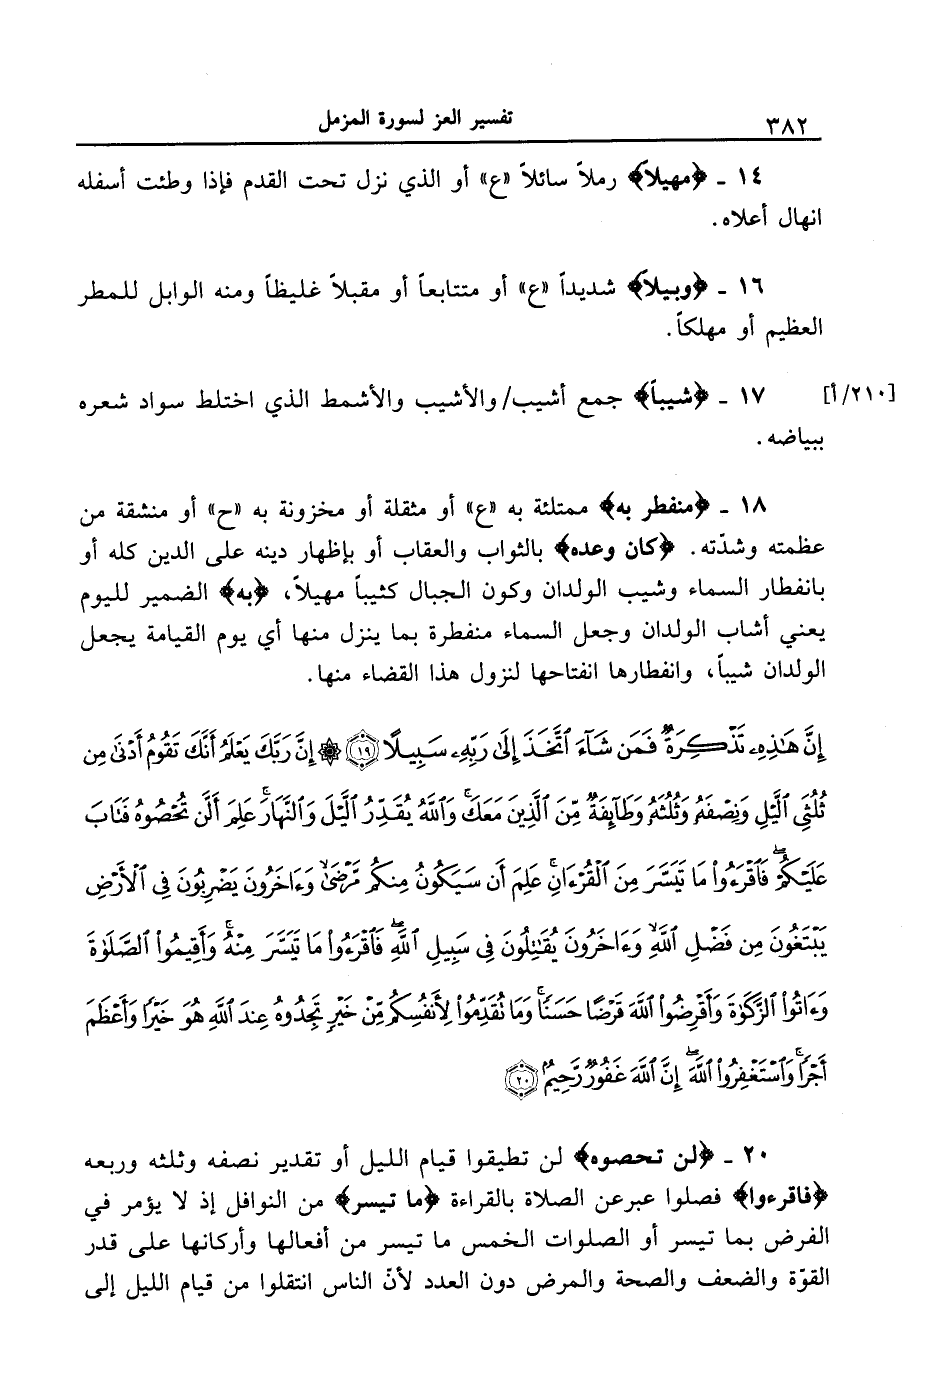 ٣٨٢ تفسير العز لسورة المزمل
١٤ ـ ﴿مهيلاً﴾ رملاً سائلاً «ع» أو الذي نزل تحت القدم فإذا وطئت أسفله
انهال أعلاه.
١٦ ـ ﴿وبيلاً﴾ شديداً «ع» أو متتابعاً أو مقبلاً غليظاً ومنه الوابل للمطر
العظيم أو مهلكاً.
[٢١٠/أ] ١٧ ـ ﴿شيباً﴾ جمع أشيب/ والأشيب والأشمط الذي اختلط سواد شعره
ببياضه.
١٨ ـ ﴿منفطر به﴾ ممتلئة به «ع» أو مثقلة أو مخزونة به «ح» أو منشقة من
عظمته وشدّته. ﴿كان وعده﴾ بالثواب والعقاب أو بإظهار دينه على الدين كله أو
بانفطار السماء وشيب الولدان وكون الجبال كثيباً مهيلاً، ﴿به﴾ الضمير لليوم
يعني أشاب الولدان وجعل السماء منفطرة بما ينزل منها أي يوم القيامة يجعل
الولدان شيباً، وانفطارها انفتاحها لنزول هذا القضاء منها.
إِنَّ هَٰذِهِۦ تَذْكِرَةٌ ۖ فَمَن شَآءَ ٱتَّخَذَ إِلَىٰ رَبِّهِۦ سَبِيلًا ﴿١٩﴾ ۞ إِنَّ رَبَّكَ يَعْلَمُ أَنَّكَ تَقُومُ أَدْنَىٰ مِن
ثُلُثَىِ ٱلَّيْلِ وَنِصْفَهُۥ وَثُلُثَهُۥ وَطَآئِفَةٌ مِّنَ ٱلَّذِينَ مَعَكَ ۚ وَٱللَّهُ يُقَدِّرُ ٱلَّيْلَ وَٱلنَّهَارَ ۚ عَلِمَ أَلَّن تُحْصُوهُ فَتَابَ
عَلَيْكُمْ ۖ فَٱقْرَءُوا۟ مَا تَيَسَّرَ مِنَ ٱلْقُرْءَانِ ۚ عَلِمَ أَن سَيَكُونُ مِنكُم مَّرْضَىٰ ۙ وَءَاخَرُونَ يَضْرِبُونَ فِى ٱلْأَرْضِ
يَبْتَغُونَ مِن فَضْلِ ٱللَّهِ ۙ وَءَاخَرُونَ يُقَٰتِلُونَ فِى سَبِيلِ ٱللَّهِ ۖ فَٱقْرَءُوا۟ مَا تَيَسَّرَ مِنْهُ ۚ وَأَقِيمُوا۟ ٱلصَّلَوٰةَ
وَءَاتُوا۟ ٱلزَّكَوٰةَ وَأَقْرِضُوا۟ ٱللَّهَ قَرْضًا حَسَنًا ۚ وَمَا تُقَدِّمُوا۟ لِأَنفُسِكُم مِّنْ خَيْرٍ تَجِدُوهُ عِندَ ٱللَّهِ هُوَ خَيْرًا وَأَعْظَمَ
أَجْرًا ۚ وَٱسْتَغْفِرُوا۟ ٱللَّهَ ۖ إِنَّ ٱللَّهَ غَفُورٌ رَّحِيمٌۢ ﴿٢٠﴾
٢٠ ـ ﴿لن تحصوه﴾ لن تطيقوا قيام الليل أو تقدير نصفه وثلثه وربعه
﴿فاقرءوا﴾ فصلوا عبرعن الصلاة بالقراءة ﴿ما تيسر﴾ من النوافل إذ لا يؤمر في
الفرض بما تيسر أو الصلوات الخمس ما تيسر من أفعالها وأركانها على قدر
القوّة والضعف والصحة والمرض دون العدد لأنّ الناس انتقلوا من قيام الليل إلى